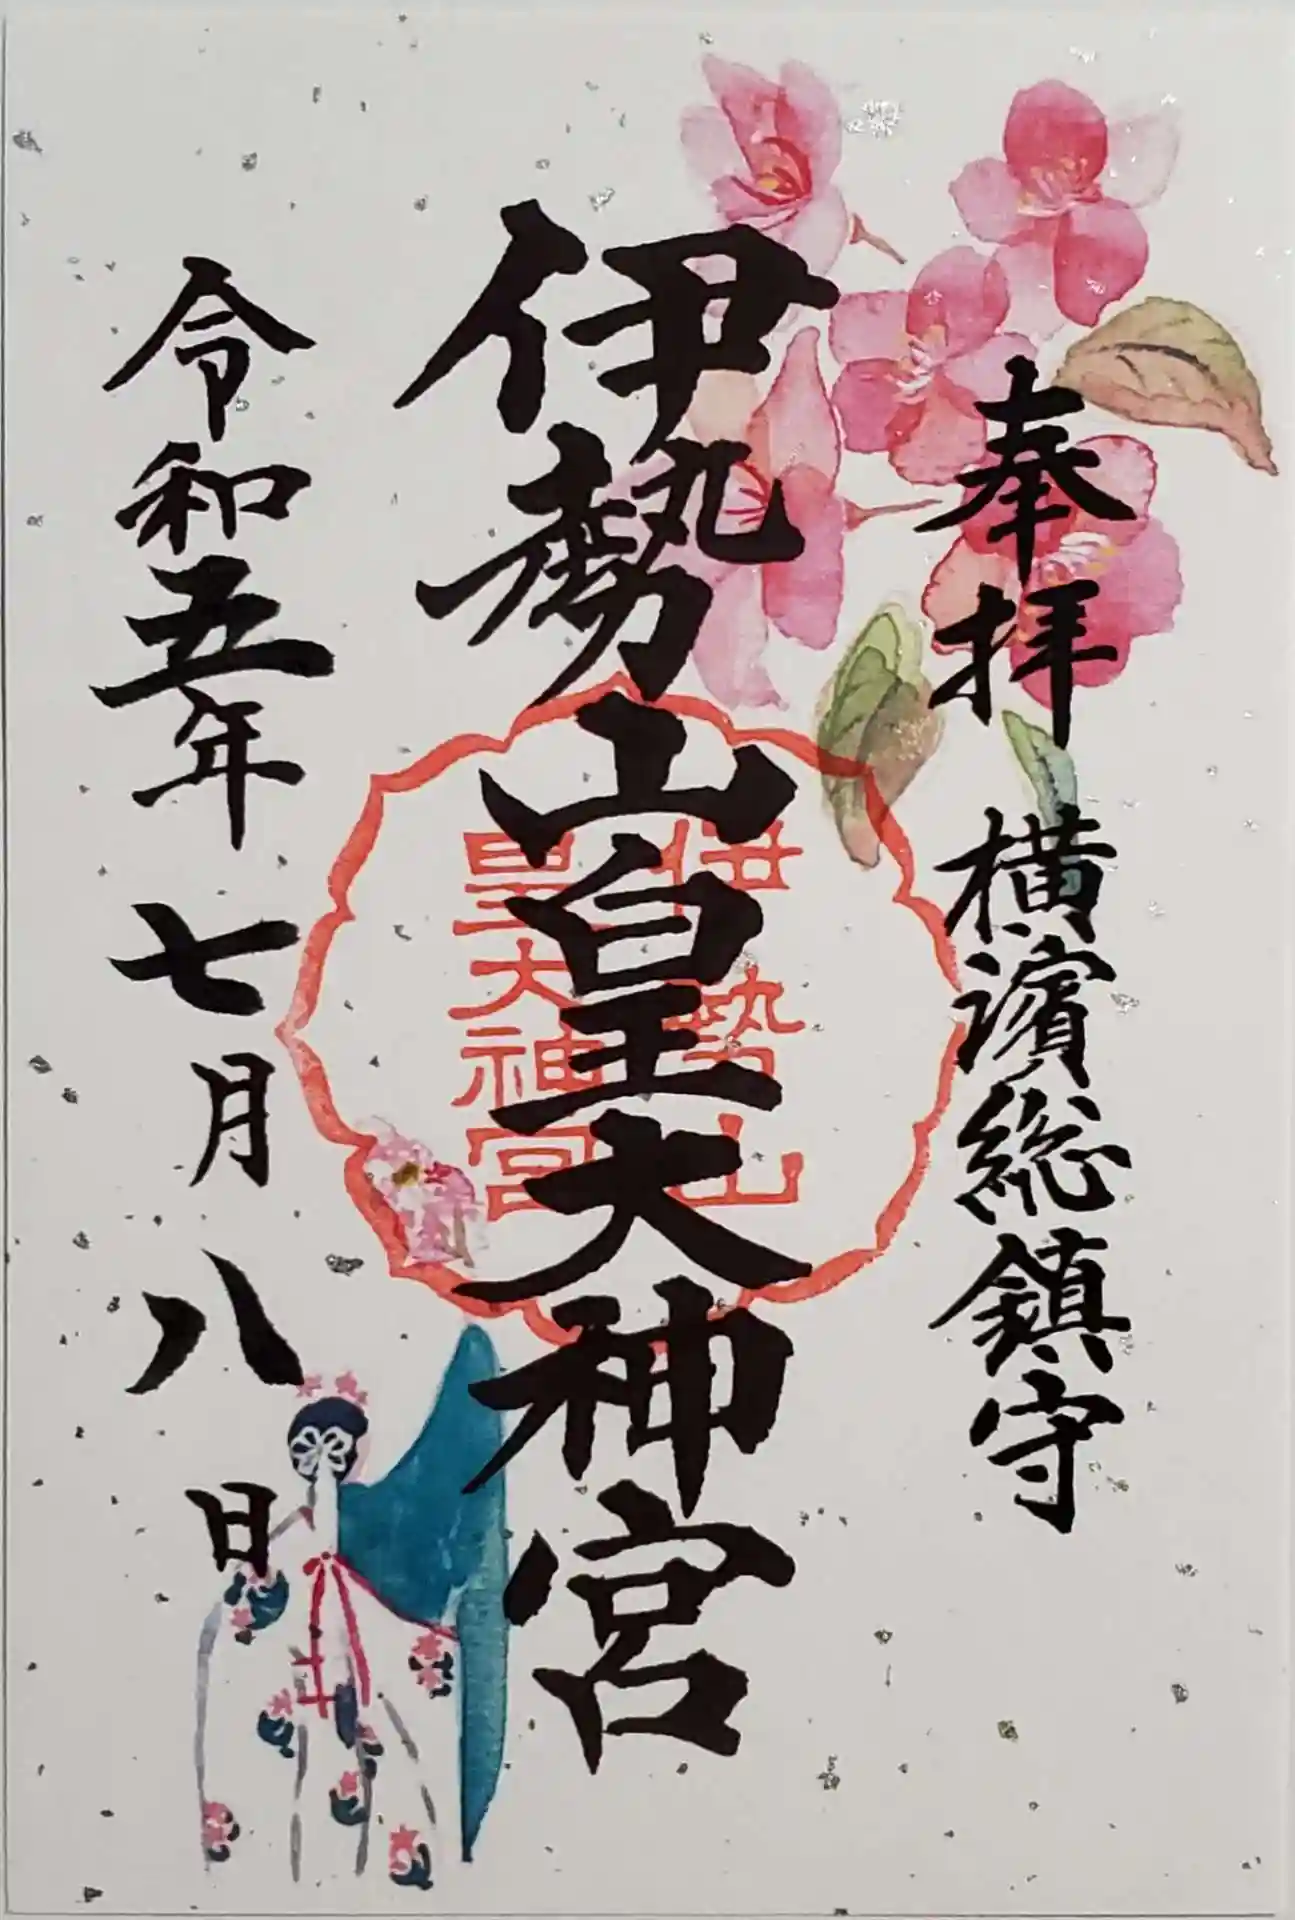 奉拝 横濱総鎮守
伊勢山皇大神宮
伊勢山
皇大神宮
令和五年 七月 八日